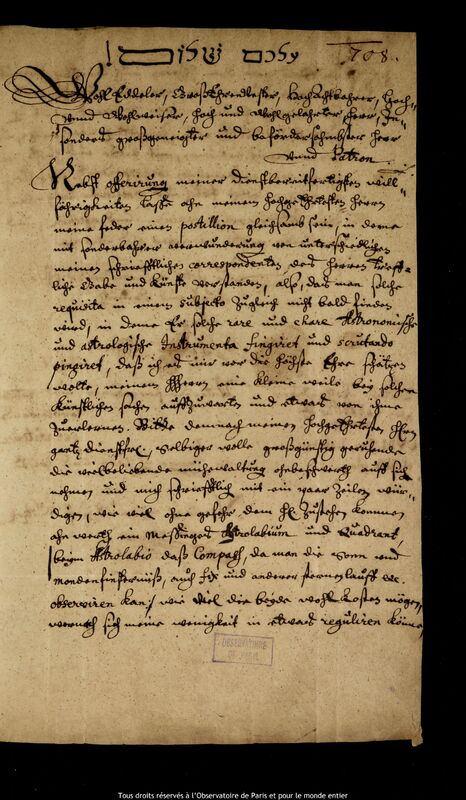 שלום עליכם! 708.
Wohl Eddeler, Groß Ehrendvester, Hochachtbahrer, Hoch-
unnd Wohlweiser, hoch und Wohlgelahrter Herr, In-
sonders großgeneigter und befördersahmbster Herr
unnd Patron.
Nebst offerirung meiner dienstbereitfertigsten will-
fährigkeiten lasse ahn meinem Hochgeehrtesten Herrn
meine feder einen postillion gleichsamb sein, in deme
mit sonderbahrer verwunderung von unterschiedlichen
meinen schrifftlichen correspondenten des Herren treff-
liche Gabe und Künste verstanden, also, das man solche
requisita in einem subjecto zugleich nicht bald finden
wird, in deme Er solche rare und chare Astronomische
und astrologische Instrumenta fingiret und scrutando
pingiret, daß ich es mir vor die höchste Ehre schätzen
wolte, meinem Herrn eine kleine weile bey solchen
künstlichen sachen auffzuwarten und etwas von ihme
zuerlernen. Bitte demnach meinen Hochgeehrtesten Herrn
gantz dienstfrl. selbiger wolle großgünstig geruhen
die vielbeliebende mühewaltung ohnbeschwerth auff sich
nehmen und mich schriefftlich mit ein paar Zeilen wür-
digen, wie viel ohne gefehr dem H. zustehen kommen
ahn werth ein Messinges Astrolabium und Quadrant,
beym Astrolabio daß Compass, da man die Sonn und
Mondenfinsterniß, auch fix und anderen sternenlauff etc.
observiren kan, wie viel die beyde wohl kosten mögen,
wornach sich meine wenigkeit in etwas reguliren könne,
OBSERVATOIRE
DE PARIS
Tous droits réservés à l'Observatoire de Paris et pour le monde entier